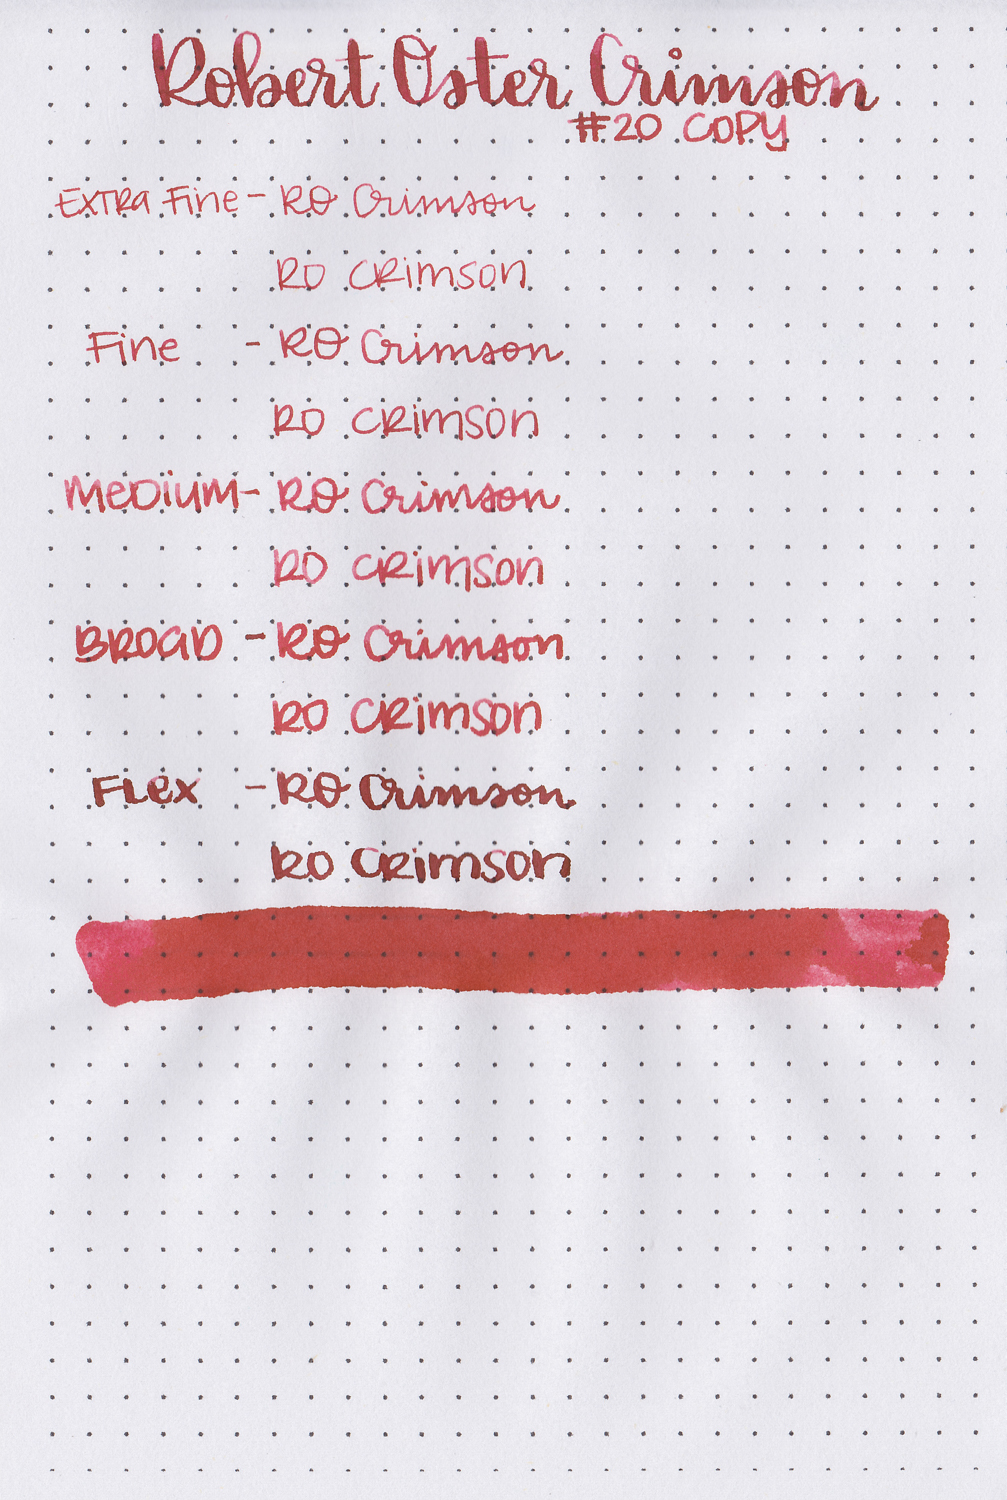 Robert Oster Crimson
#20 COPY
EXTRA Fine - RO Crimson
RO CRimson
Fine - RO Crimson
RO CRimson
MeDiUM - RO Crimson
RO CRimson
BROAD - RO Crimson
RO CRimson
FLex - RO Crimson
RO CRimson